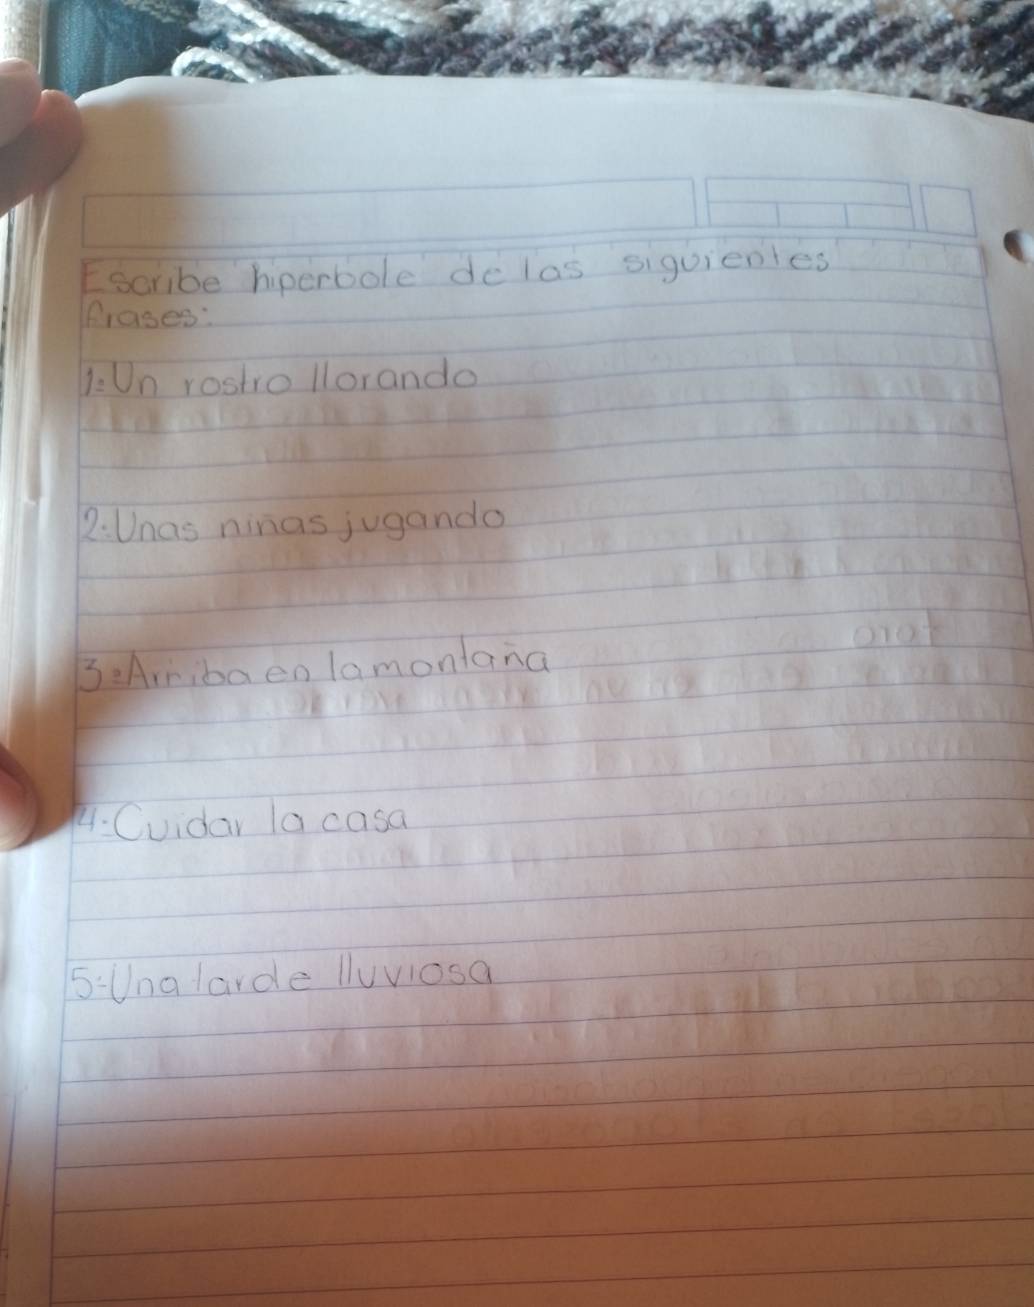 Escribe hiperbole de las siguientes
frases:
1: Un rostro llorando
2: Unas niñas jugando
3: Arriba en la montaña
4: Cuidar la casa
5: Una tarde lluviosa